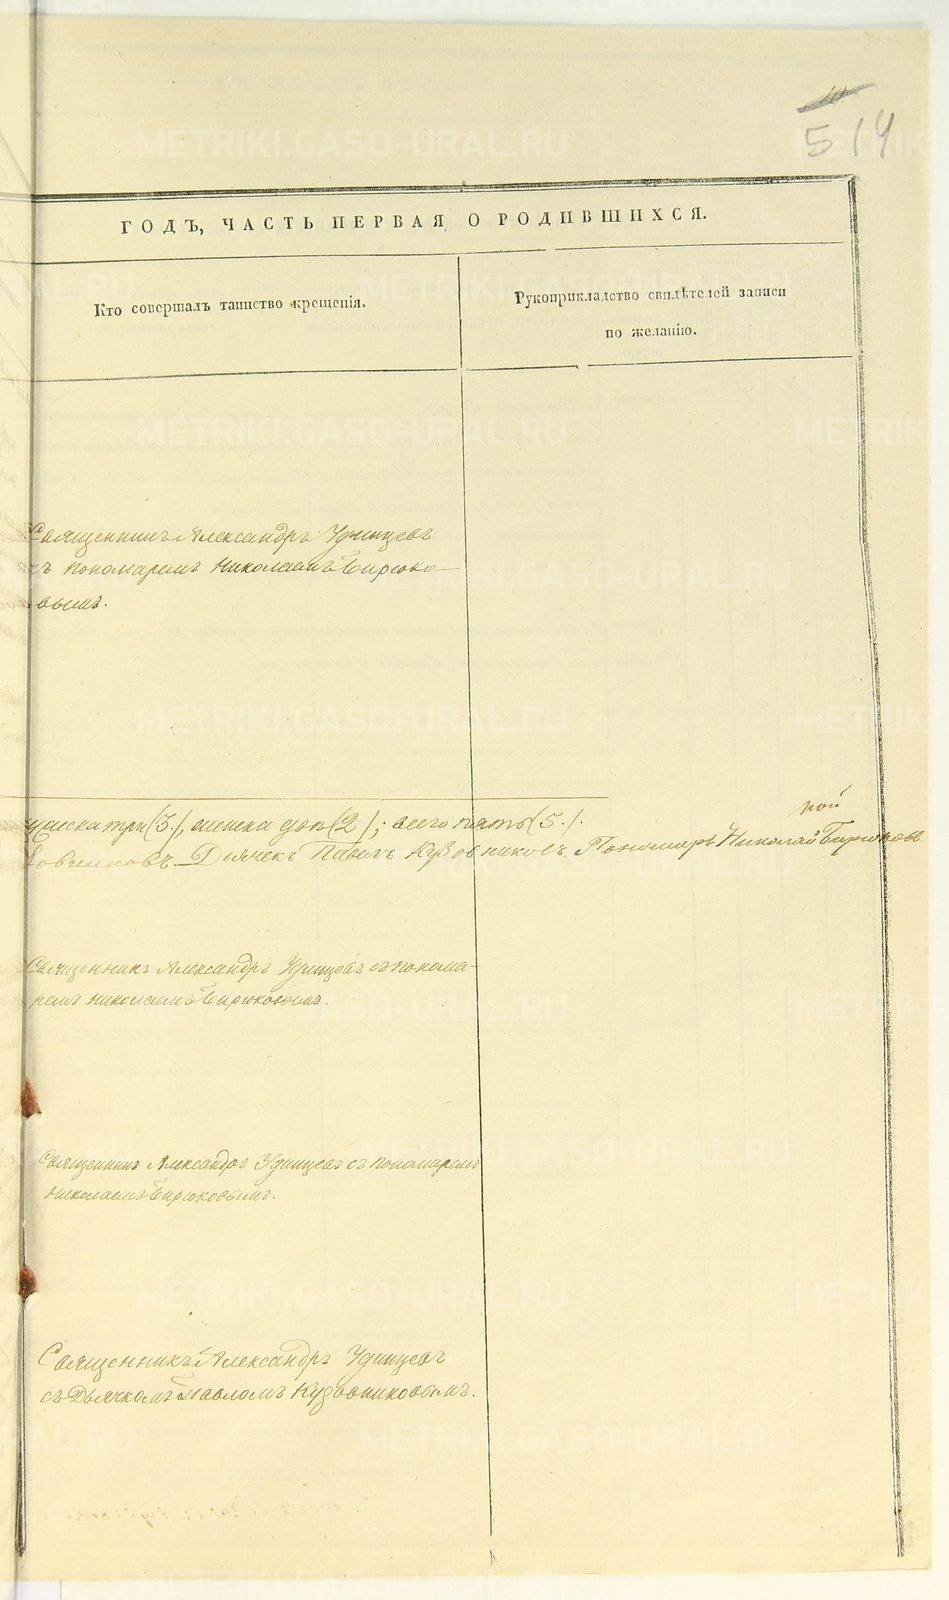 514
ГОДЪ, ЧАСТЬ ПЕРВАЯ О РОДИВШИХСЯ.
Кто совершалъ таинство крещенія.
Рукоприкладство свидѣтелей записи
по желанію.
Священникъ Александръ Удинцевъ
съ пономаремъ Николаемъ Бирюко-
вымъ.
мужеска три (3.), женска два (2.); всего пять (5.).
Дьячекъ Павелъ Кузовниковъ. Пономарь Николай Бирюковъ.
Священникъ Александръ Удинцевъ съ понома-
ремъ Николаемъ Бирюковымъ.
Священникъ Александръ Удинцевъ съ пономаремъ
Николаемъ Бирюковымъ.
Священникъ Александръ Удинцевъ
съ Дьячкомъ Павломъ Кузовниковымъ.
METRIKI.GASO-URAL.RU